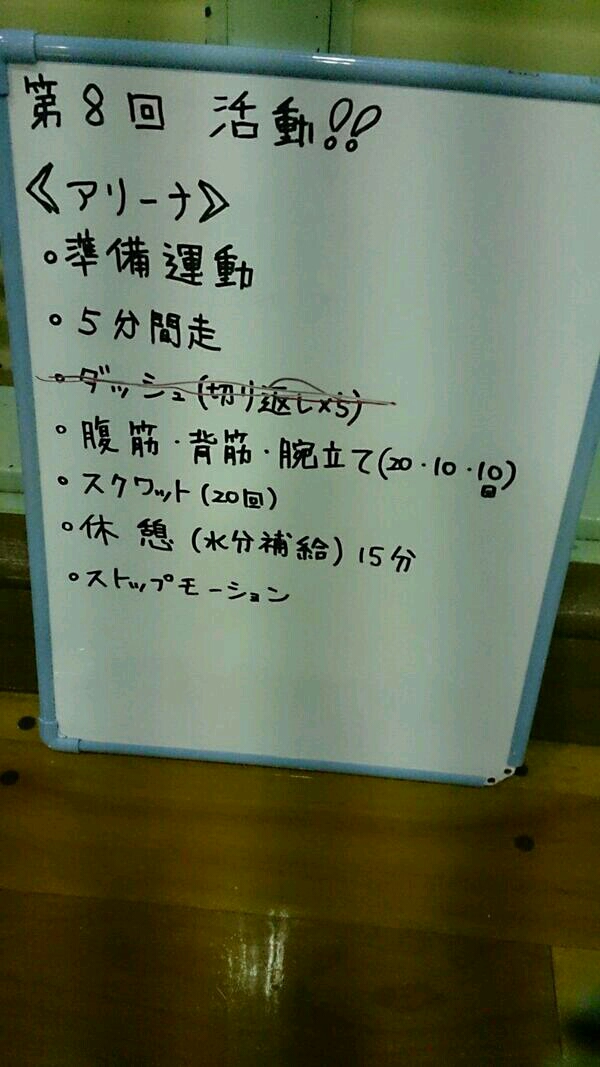 第8回 活動!!
《アリーナ》
・準備運動
・5分間走
・ダッシュ(切り返し×5)
・腹筋・背筋・腕立て(20・10・10回)
・スクワット(20回)
・休憩(水分補給)15分
・ストップモーション